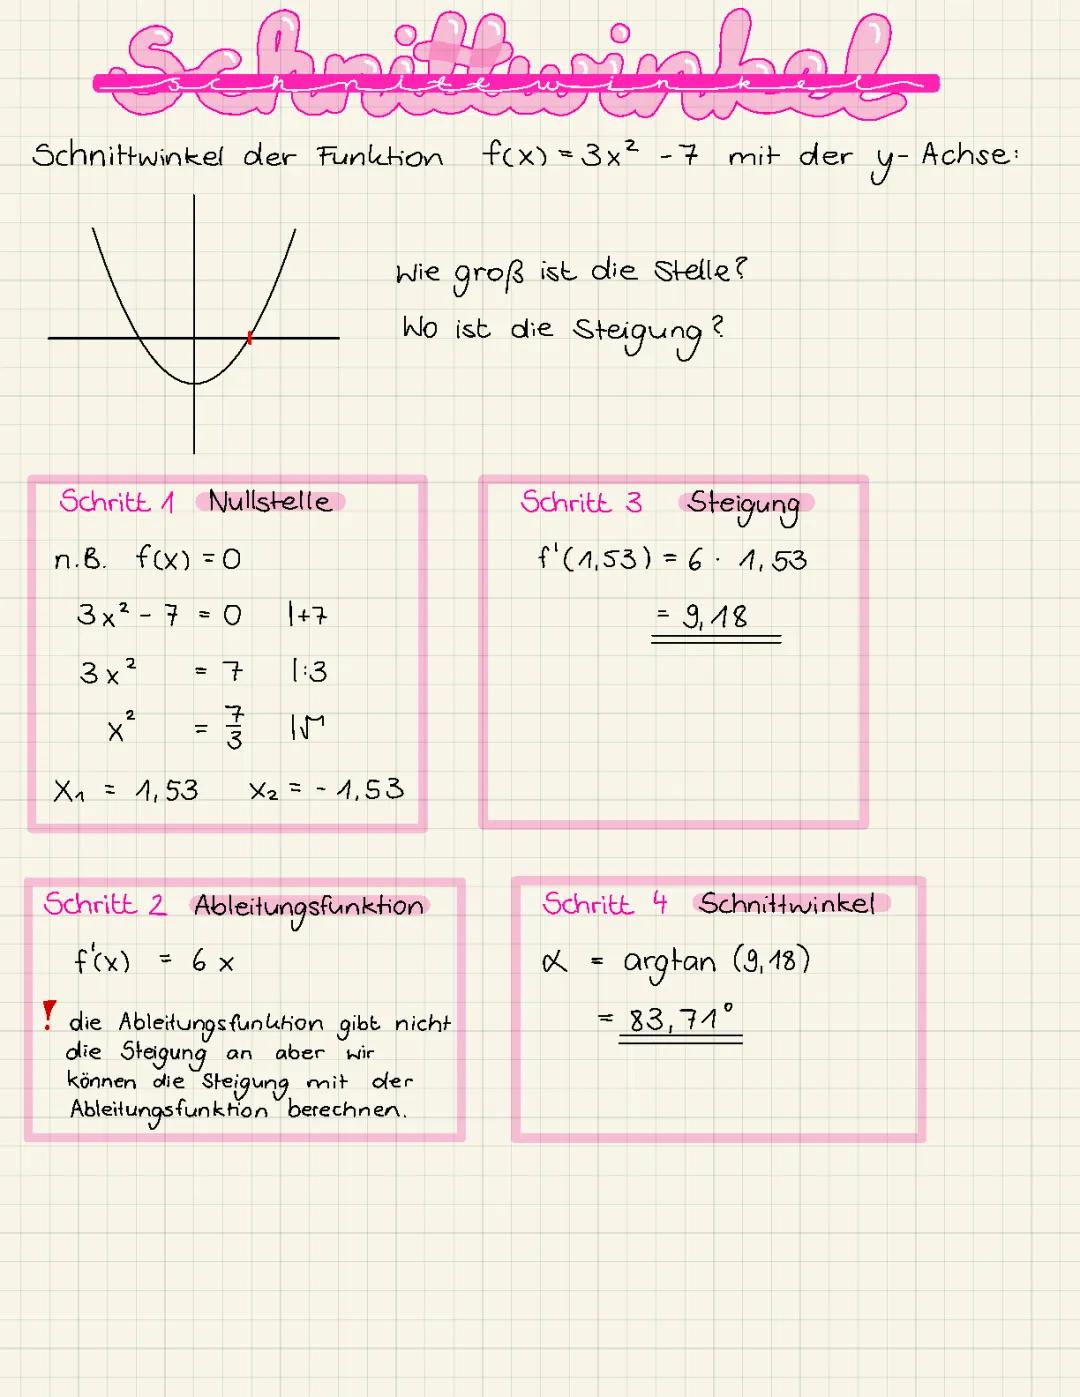 Schnittwinkel
schnittwinkel
Schnittwinkel der Funktion f(x) = 3x² - 7 mit der y-Achse:
Wie groß ist die Stelle?
Wo ist die Steigung?
Schritt 1 Nullstelle
n.B. f(x) = 0
3x² - 7 = 0 |+7
3x² = 7 |:3
x² = 7/3 |√
X₁ = 1,53 X₂ = - 1,53
Schritt 3 Steigung
f'(1,53) = 6 · 1,53
= 9,18
Schritt 2 Ableitungsfunktion
f'(x) = 6x
! die Ableitungsfunktion gibt nicht
die Steigung an aber wir
können die Steigung mit der
Ableitungsfunktion berechnen.
Schritt 4 Schnittwinkel
α = argtan (9,18)
= 83,71°